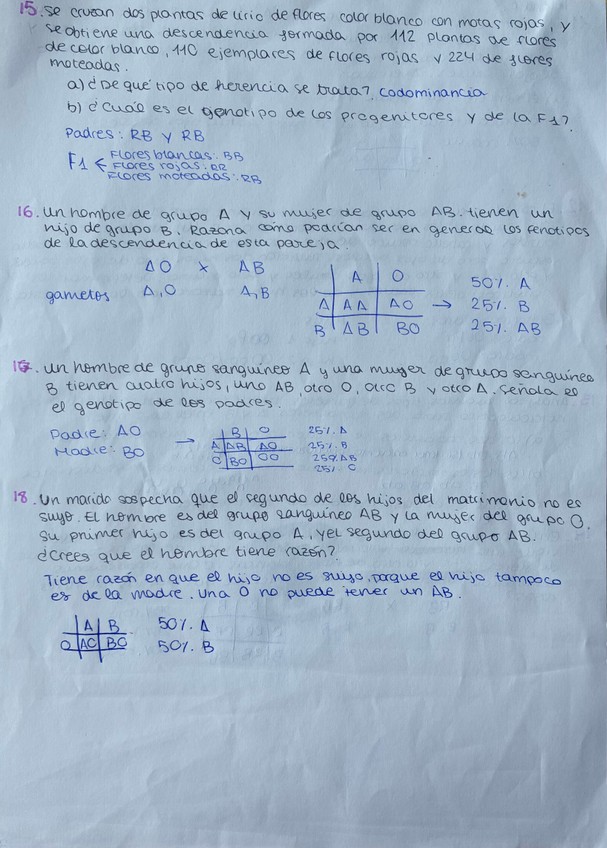 15. Se cruzan dos plantas de lirio de flores color blanco con motas rojas, y
se obtiene una descendencia formada por 112 plantas de flores
de color blanco, 110 ejemplares de flores rojas y 224 de flores
moteadas.
a) ¿De qué tipo de herencia se trata? Codominancia
b) ¿Cuál es el genotipo de los progenitores y de la F1?
Padres: RB y RB
F1 < Flores blancas: BB
Flores rojas: RR
Flores moteadas: RB
16. Un hombre de grupo A y su mujer de grupo AB. tienen un
hijo de grupo B. Razona cómo podrían ser en general los fenotipos
de la descendencia de esta pareja.
AO x AB
gametos A,O A,B
A O
A AA AO → 50%. A
B AB BO 25%. B
25%. AB
17. Un hombre de grupo sanguíneo A y una mujer de grupo sanguíneo
B tienen cuatro hijos, uno AB, otro O, otro B y otro A. Señala el
el genotipo de los padres.
Padre: AO
Madre: BO
→
B O
A AB AO
O BO OO
25%. A
25%. B
25% AB
25% O
18. Un marido sospecha que el segundo de los hijos del matrimonio no es
suyo. El hombre es del grupo sanguíneo AB y la mujer del grupo O.
Su primer hijo es del grupo A, y el segundo del grupo AB.
¿Crees que el hombre tiene razón?
Tiene razón en que el hijo no es suyo, porque el hijo tampoco
es de la madre. Una O no puede tener un AB.
A B
O AO BO
50%. A
50%. B